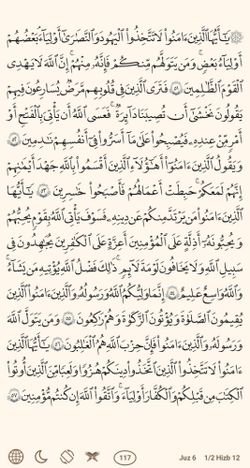 ۞ يَـٰٓأَيُّهَا ٱلَّذِينَ ءَامَنُوا۟ لَا تَتَّخِذُوا۟ ٱلْيَهُودَ وَٱلنَّصَـٰرَىٰٓ أَوْلِيَآءَ ۘ بَعْضُهُمْ
أَوْلِيَآءُ بَعْضٍ ۚ وَمَن يَتَوَلَّهُم مِّنكُمْ فَإِنَّهُۥ مِنْهُمْ ۗ إِنَّ ٱللَّهَ لَا يَهْدِى
ٱلْقَوْمَ ٱلظَّـٰلِمِينَ ٥١ فَتَرَى ٱلَّذِينَ فِى قُلُوبِهِم مَّرَضٌ يُسَـٰرِعُونَ فِيهِمْ
يَقُولُونَ نَخْشَىٰٓ أَن تُصِيبَنَا دَآئِرَةٌ ۚ فَعَسَى ٱللَّهُ أَن يَأْتِىَ بِٱلْفَتْحِ أَوْ
أَمْرٍ مِّنْ عِندِهِۦ فَيُصْبِحُوا۟ عَلَىٰ مَآ أَسَرُّوا۟ فِىٓ أَنفُسِهِمْ نَـٰدِمِينَ ٥٢
وَيَقُولُ ٱلَّذِينَ ءَامَنُوٓا۟ أَهَـٰٓؤُلَآءِ ٱلَّذِينَ أَقْسَمُوا۟ بِٱللَّهِ جَهْدَ أَيْمَـٰنِهِمْ ۙ
إِنَّهُمْ لَمَعَكُمْ ۚ حَبِطَتْ أَعْمَـٰلُهُمْ فَأَصْبَحُوا۟ خَـٰسِرِينَ ٥٣ يَـٰٓأَيُّهَا
ٱلَّذِينَ ءَامَنُوا۟ مَن يَرْتَدَّ مِنكُمْ عَن دِينِهِۦ فَسَوْفَ يَأْتِى ٱللَّهُ بِقَوْمٍ يُحِبُّهُمْ
وَيُحِبُّونَهُۥٓ أَذِلَّةٍ عَلَى ٱلْمُؤْمِنِينَ أَعِزَّةٍ عَلَى ٱلْكَـٰفِرِينَ يُجَـٰهِدُونَ فِى
سَبِيلِ ٱللَّهِ وَلَا يَخَافُونَ لَوْمَةَ لَآئِمٍ ۚ ذَٰلِكَ فَضْلُ ٱللَّهِ يُؤْتِيهِ مَن يَشَآءُ ۚ
وَٱللَّهُ وَٰسِعٌ عَلِيمٌ ٥٤ إِنَّمَا وَلِيُّكُمُ ٱللَّهُ وَرَسُولُهُۥ وَٱلَّذِينَ ءَامَنُوا۟ ٱلَّذِينَ
يُقِيمُونَ ٱلصَّلَوٰةَ وَيُؤْتُونَ ٱلزَّكَوٰةَ وَهُمْ رَٰكِعُونَ ٥٥ وَمَن يَتَوَلَّ ٱللَّهَ
وَرَسُولَهُۥ وَٱلَّذِينَ ءَامَنُوا۟ فَإِنَّ حِزْبَ ٱللَّهِ هُمُ ٱلْغَـٰلِبُونَ ٥٦ يَـٰٓأَيُّهَا ٱلَّذِينَ
ءَامَنُوا۟ لَا تَتَّخِذُوا۟ ٱلَّذِينَ ٱتَّخَذُوا۟ دِينَكُمْ هُزُوًا وَلَعِبًا مِّنَ ٱلَّذِينَ أُوتُوا۟
ٱلْكِتَـٰبَ مِن قَبْلِكُمْ وَٱلْكُفَّارَ أَوْلِيَآءَ ۚ وَٱتَّقُوا۟ ٱللَّهَ إِن كُنتُم مُّؤْمِنِينَ ٥٧
117 Juz 6 1/2 Hizb 12